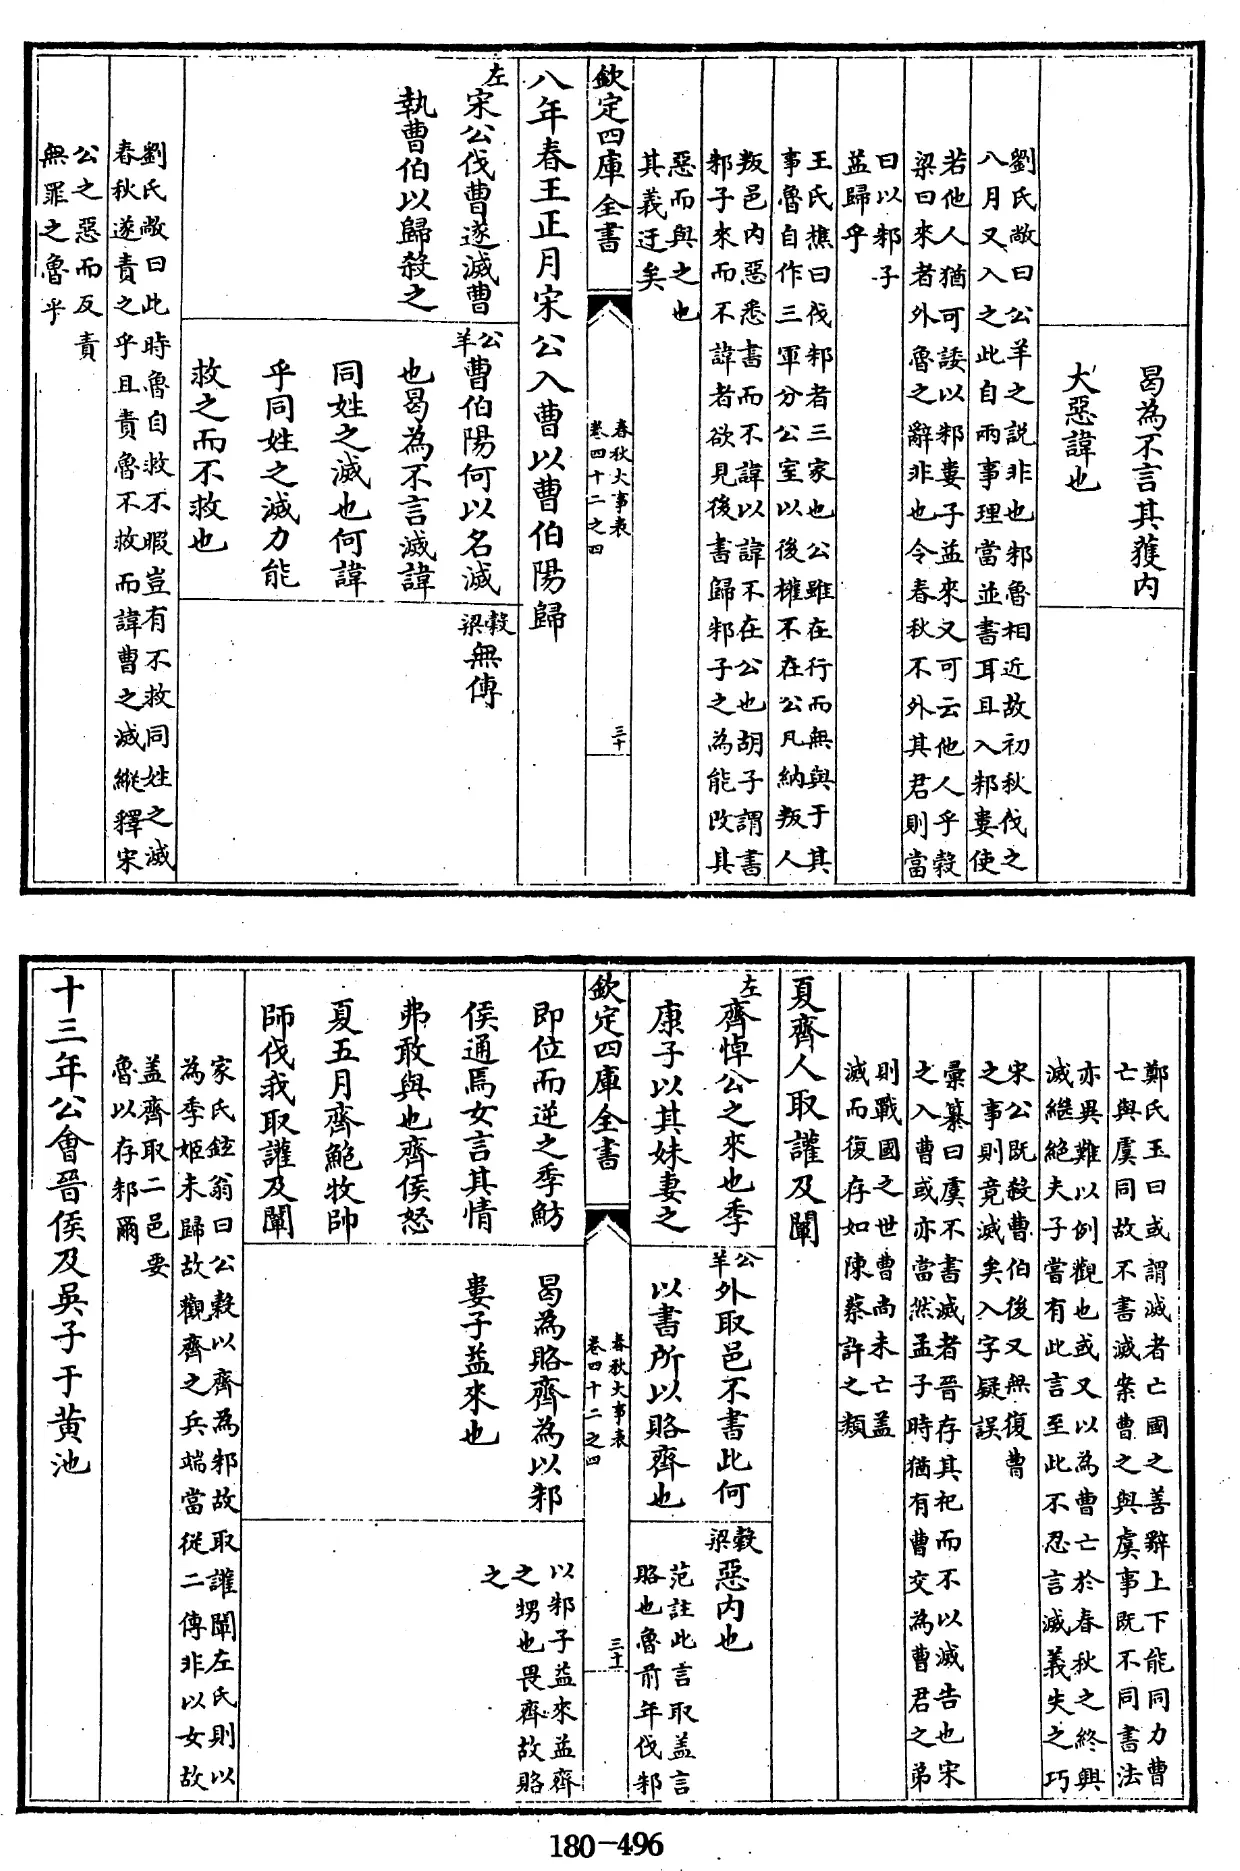 曷為不言其獲内
大惡諱也
劉氏敞曰公羊之説非也邾魯相近故初秋伐之
八月又入之此自兩事理當並書耳且入邾婁使
若他人猶可諉以邾婁子益來又可云他人乎穀
梁曰來者外魯之辭非也令春秋不外其君則當
曰以邾子
益歸乎
王氏樵曰伐邾者三家也公雖在行而無與于其
事魯自作三軍分公室以後權不在公凡納叛人
叛邑内惡悉書而不諱以諱不在公也胡子謂書
邾子來而不諱者欲見後書歸邾子之為能改其
惡而與之也
其義迂矣
欽定四庫全書
春秋大事表
卷四十二之四
三十
八年春王正月宋公入曹以曹伯陽歸
左
宋公伐曹遂滅曹
執曹伯以歸殺之
公羊
曹伯陽何以名滅
也曷為不言滅諱
同姓之滅也何諱
乎同姓之滅力能
救之而不救也
穀梁
無傳
劉氏敞曰此時魯自救不暇豈有不救同姓之滅
春秋遂責之乎且責魯不救而諱曹之滅縱釋宋
公之惡而反責
無罪之魯乎
鄭氏玉曰或謂滅者亡國之善辭上下能同力曹
亡與虞同故不書滅案曹之與虞事既不同書法
亦異難以例觀也或又以為曹亡於春秋之終興
滅繼絶夫子嘗有此言至此不忍言滅義失之巧
宋公既殺曹伯後又無復曹
之事則竟滅矣入字疑誤
彙纂曰虞不書滅者晉存其祀而不以滅告也宋
之入曹或亦當然孟子時猶有曹交為曹君之弟
則戰國之世曹尚未亡盖
滅而復存如陳蔡許之類
夏齊人取讙及闡
左
齊悼公之來也季
康子以其妹妻之
即位而逆之季魴
侯通焉女言其情
弗敢與也齊侯怒
夏五月齊鮑牧帥
師伐我取讙及闡
公羊
外取邑不書此何
以書所以賂齊也
曷為賂齊為以邾
婁子益來也
穀梁
惡内也
范註此言取盖言
賂也魯前年伐邾
以邾子益來益齊
之甥也畏齊故賂
之
欽定四庫全書
春秋大事表
卷四十二之四
三十一
家氏鉉翁曰公穀以齊為邾故取讙闡左氏則以
為季姬未歸故觀齊之兵端當從二傳非以女故
盖齊取二邑要
魯以存邾爾
十三年公會晉侯及吳子于黄池
180-496